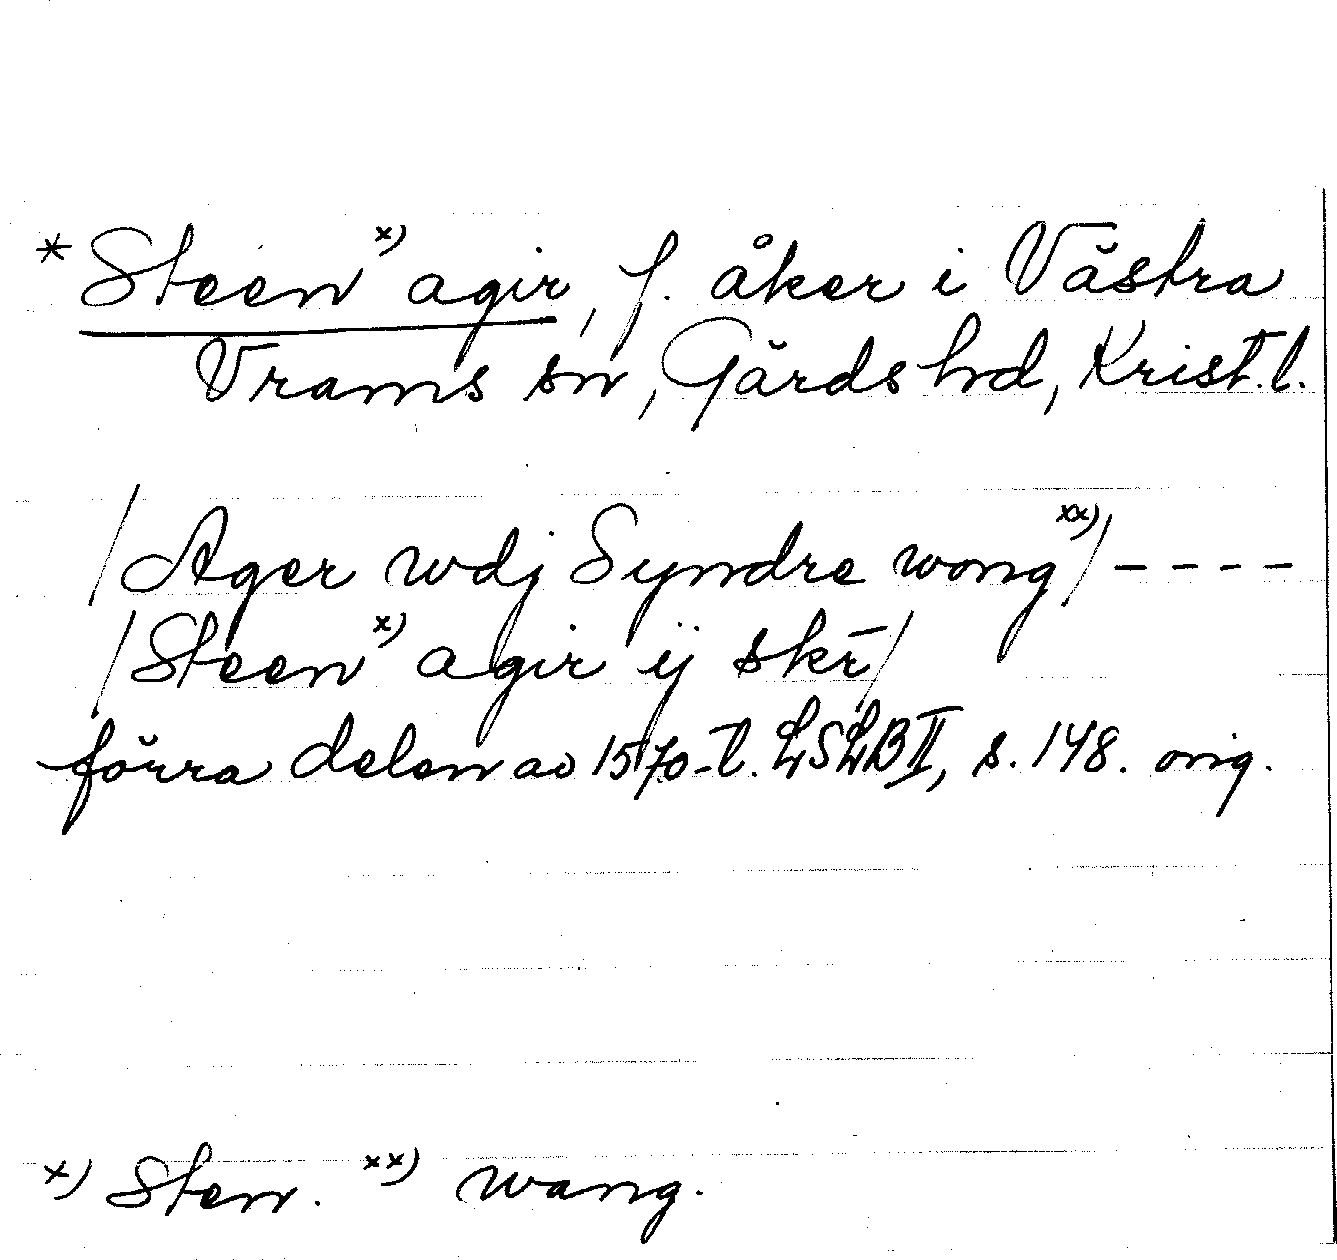 * Steen x) agir, f. åker i Västra
Vrams sn, Gärds hd, Krist. l.
/Ager wdj Syndre wong xx)/ - - - -
/Steen x) agir ij skr̄/
förra delen av 1570-t. LSLB II, s. 148. orig.
x) Sten. xx) wang.